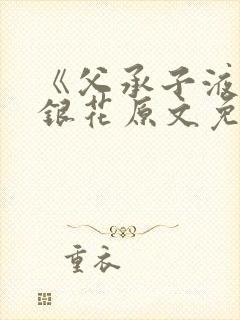 《父承子液
銀花原文免
重衣